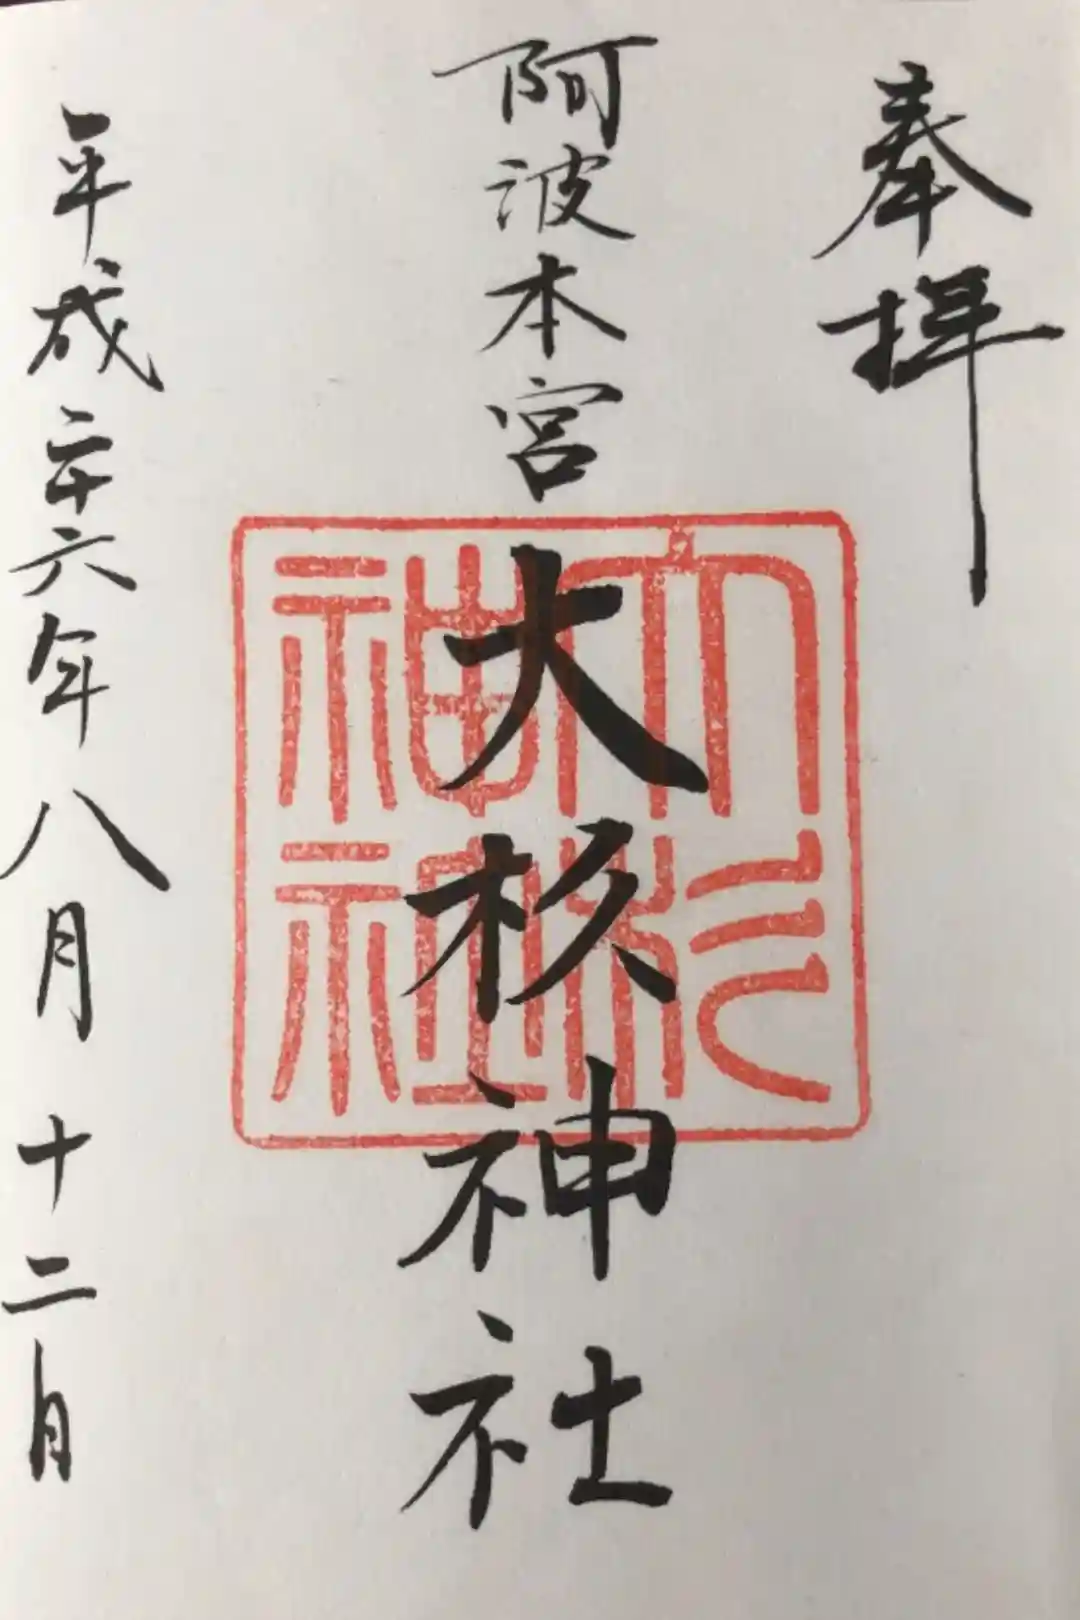 奉拝
阿波本宮
大杦神社
平成二十六年八月十二日
大杉
神社